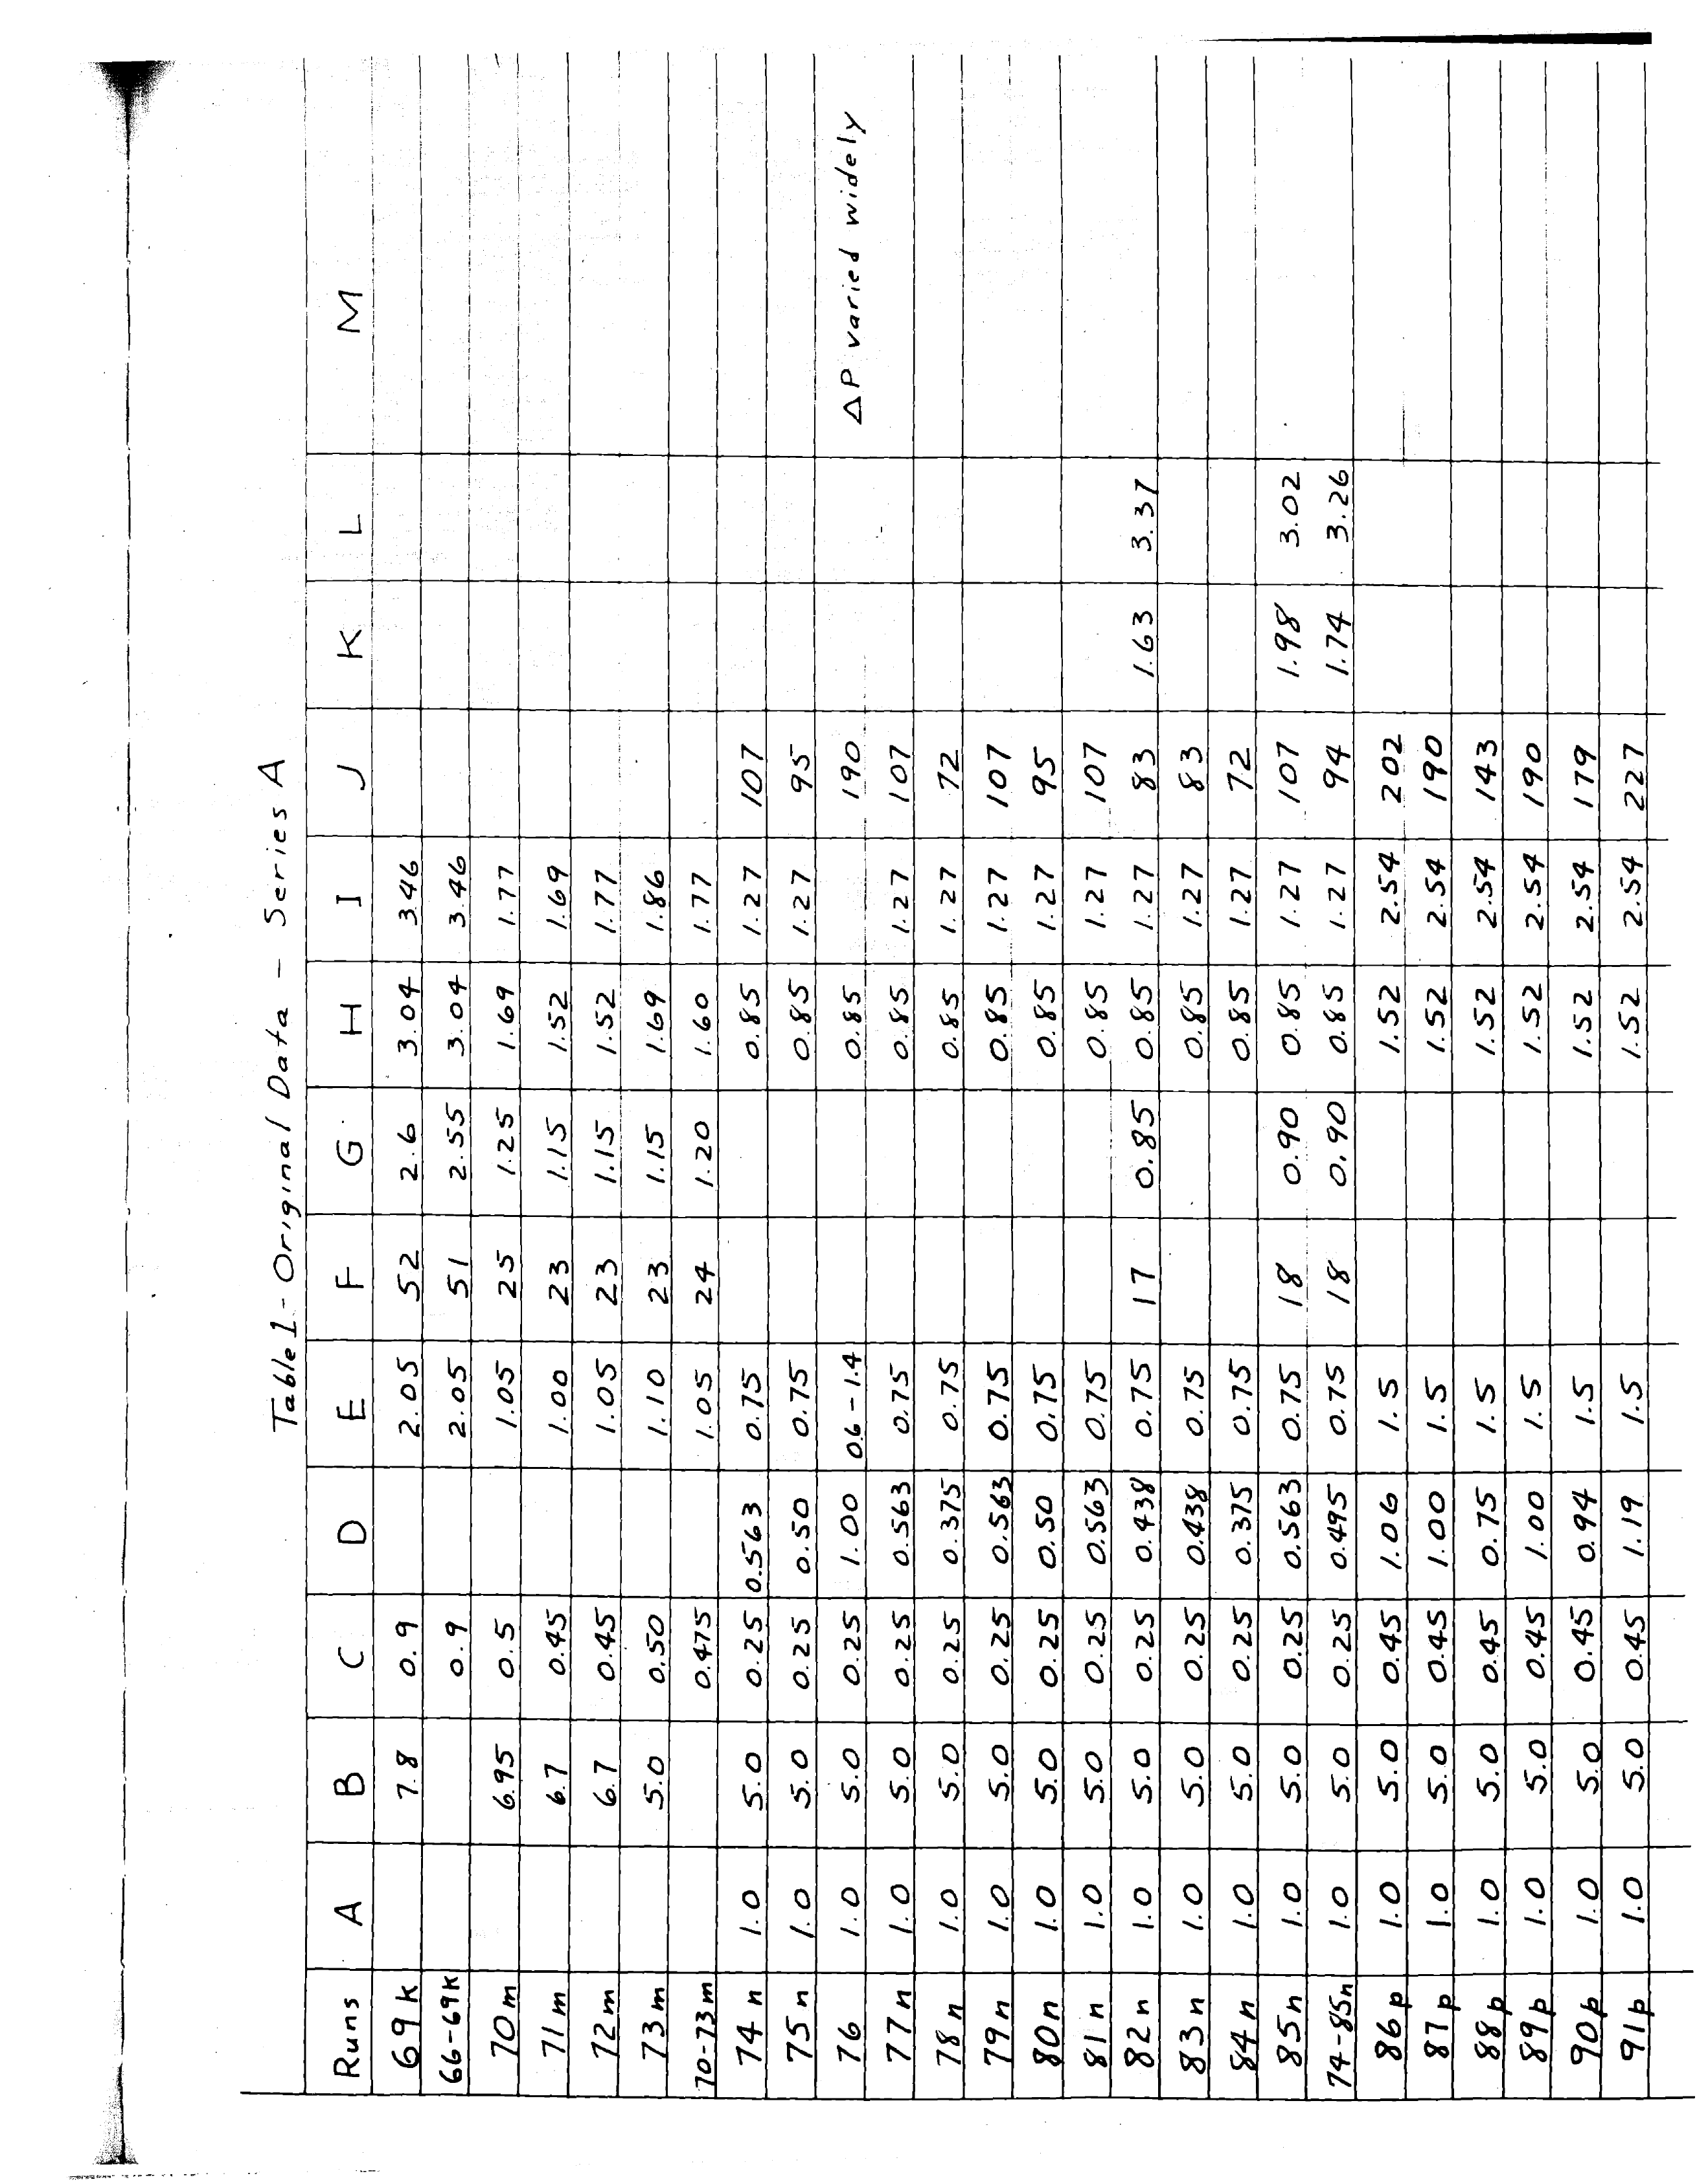 Table 1 - Original Data - Series A
Runs A B C D E F G H I J K L M
69k 7.8 0.9 2.05 52 2.6 3.04 3.46
66-69k 0.9 2.05 51 2.55 3.04 3.46
70m 6.95 0.5 1.05 25 1.25 1.69 1.77
71m 6.7 0.45 1.00 23 1.15 1.52 1.69
72m 6.7 0.45 1.05 23 1.15 1.52 1.77
73m 5.0 0.50 1.10 23 1.15 1.69 1.86
70-73m 0.475 1.05 24 1.20 1.60 1.77
74n 1.0 5.0 0.25 0.563 0.75 0.85 1.27 107
75n 1.0 5.0 0.25 0.50 0.75 0.85 1.27 95
76 1.0 5.0 0.25 1.00 0.6-1.4 0.85 190 ΔP varied widely
77n 1.0 5.0 0.25 0.563 0.75 0.85 1.27 107
78n 1.0 5.0 0.25 0.375 0.75 0.85 1.27 72
79n 1.0 5.0 0.25 0.563 0.75 0.85 1.27 107
80n 1.0 5.0 0.25 0.50 0.75 0.85 1.27 95
81n 1.0 5.0 0.25 0.563 0.75 0.85 1.27 107
82n 1.0 5.0 0.25 0.438 0.75 17 0.85 0.85 1.27 83 1.63 3.37
83n 1.0 5.0 0.25 0.438 0.75 0.85 1.27 83
84n 1.0 5.0 0.25 0.375 0.75 0.85 1.27 72
85n 1.0 5.0 0.25 0.563 0.75 18 0.90 0.85 1.27 107 1.98 3.02
74-85n 1.0 5.0 0.25 0.495 0.75 18 0.90 0.85 1.27 94 1.74 3.26
86p 1.0 5.0 0.45 1.06 1.5 1.52 2.54 202
87p 1.0 5.0 0.45 1.00 1.5 1.52 2.54 190
88p 1.0 5.0 0.45 0.75 1.5 1.52 2.54 143
89p 1.0 5.0 0.45 1.00 1.5 1.52 2.54 190
90p 1.0 5.0 0.45 0.94 1.5 1.52 2.54 179
91p 1.0 5.0 0.45 1.19 1.5 1.52 2.54 227